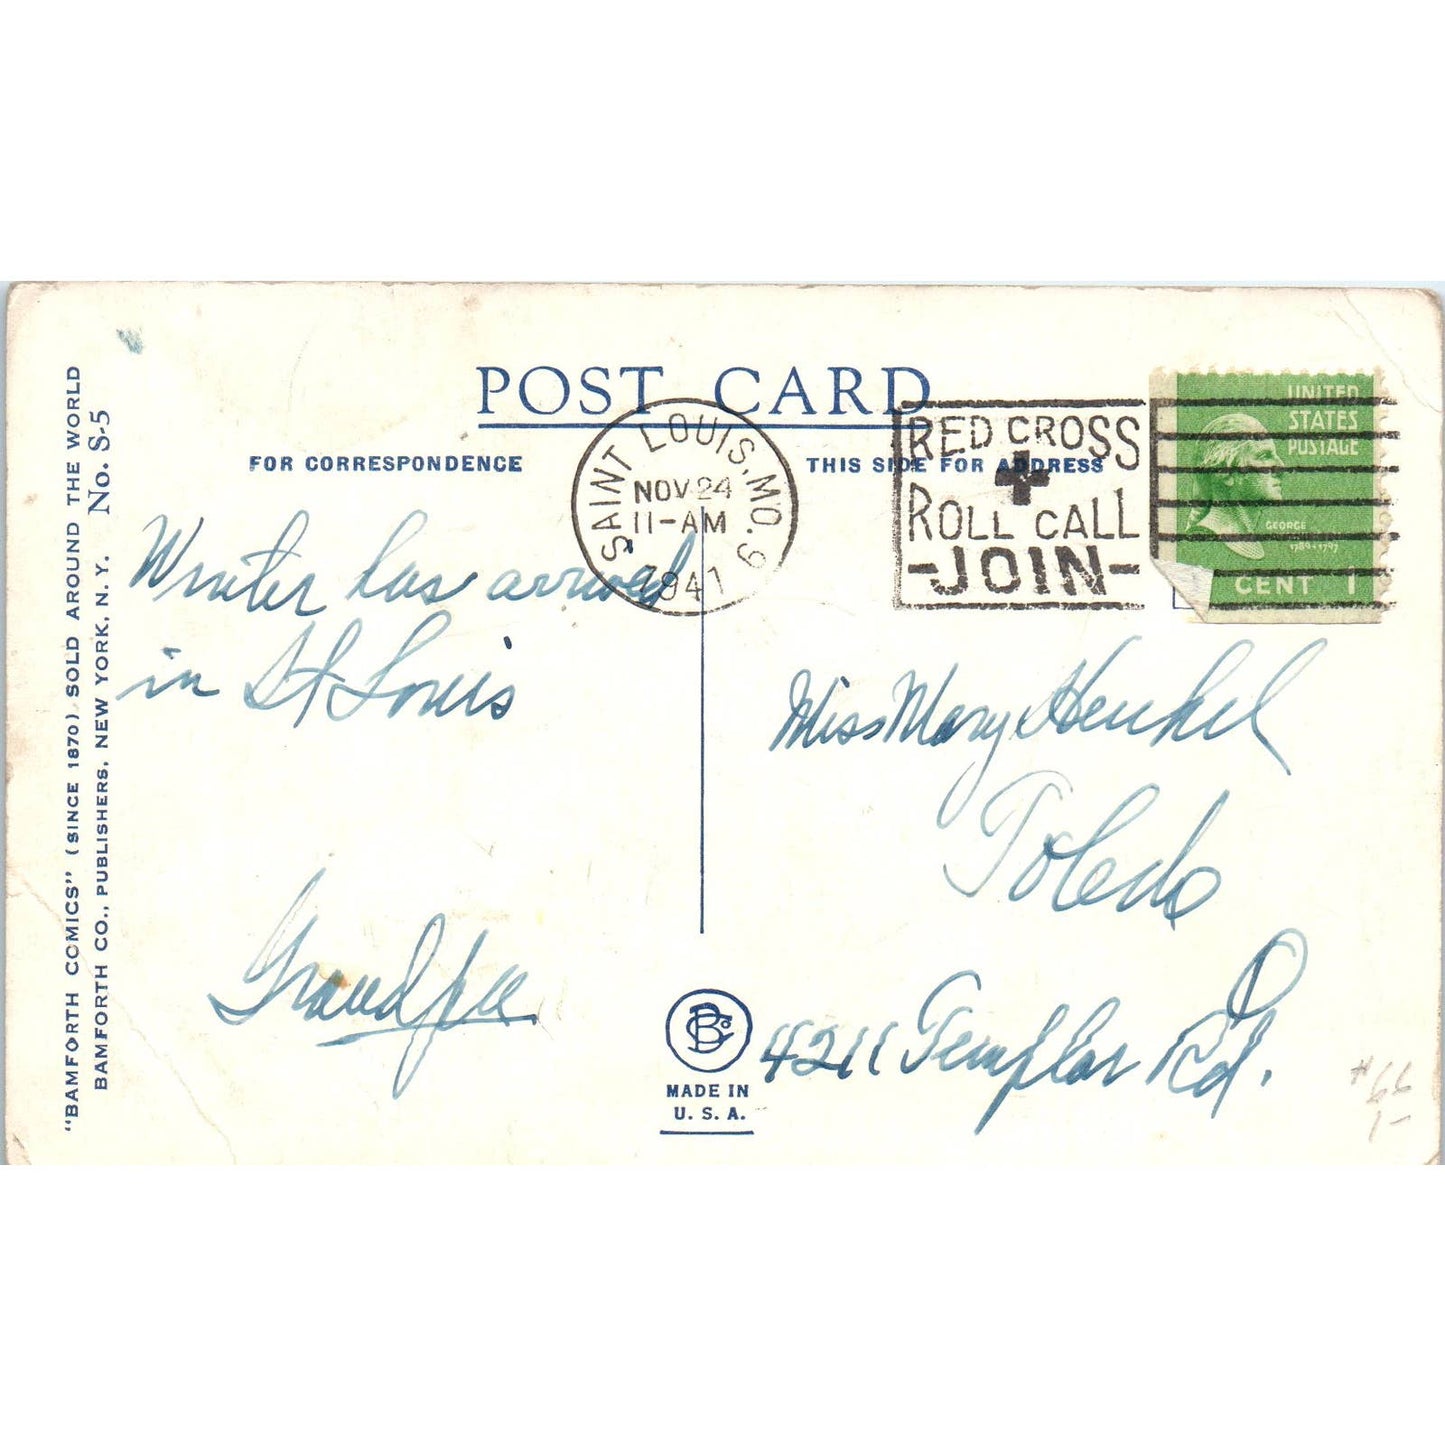 POST CARD
FOR CORRESPONDENCE
THIS SIDE FOR ADDRESS
SAINT LOUIS, MO. 9
NOV 24
11-AM
1941
RED CROSS
ROLL CALL
-JOIN-
UNITED
STATES
POSTAGE
GEORGE
CENT 1
"BAMFORTH COMICS" (SINCE 1870) SOLD AROUND THE WORLD
BAMFORTH CO., PUBLISHERS, NEW YORK, N. Y. No. S-5
Winter has arrived
in St Louis
Grandpa
Miss Mary Henkel
Toledo
O
4211 Templar Rd.
MADE IN
U. S. A.
#66
1-